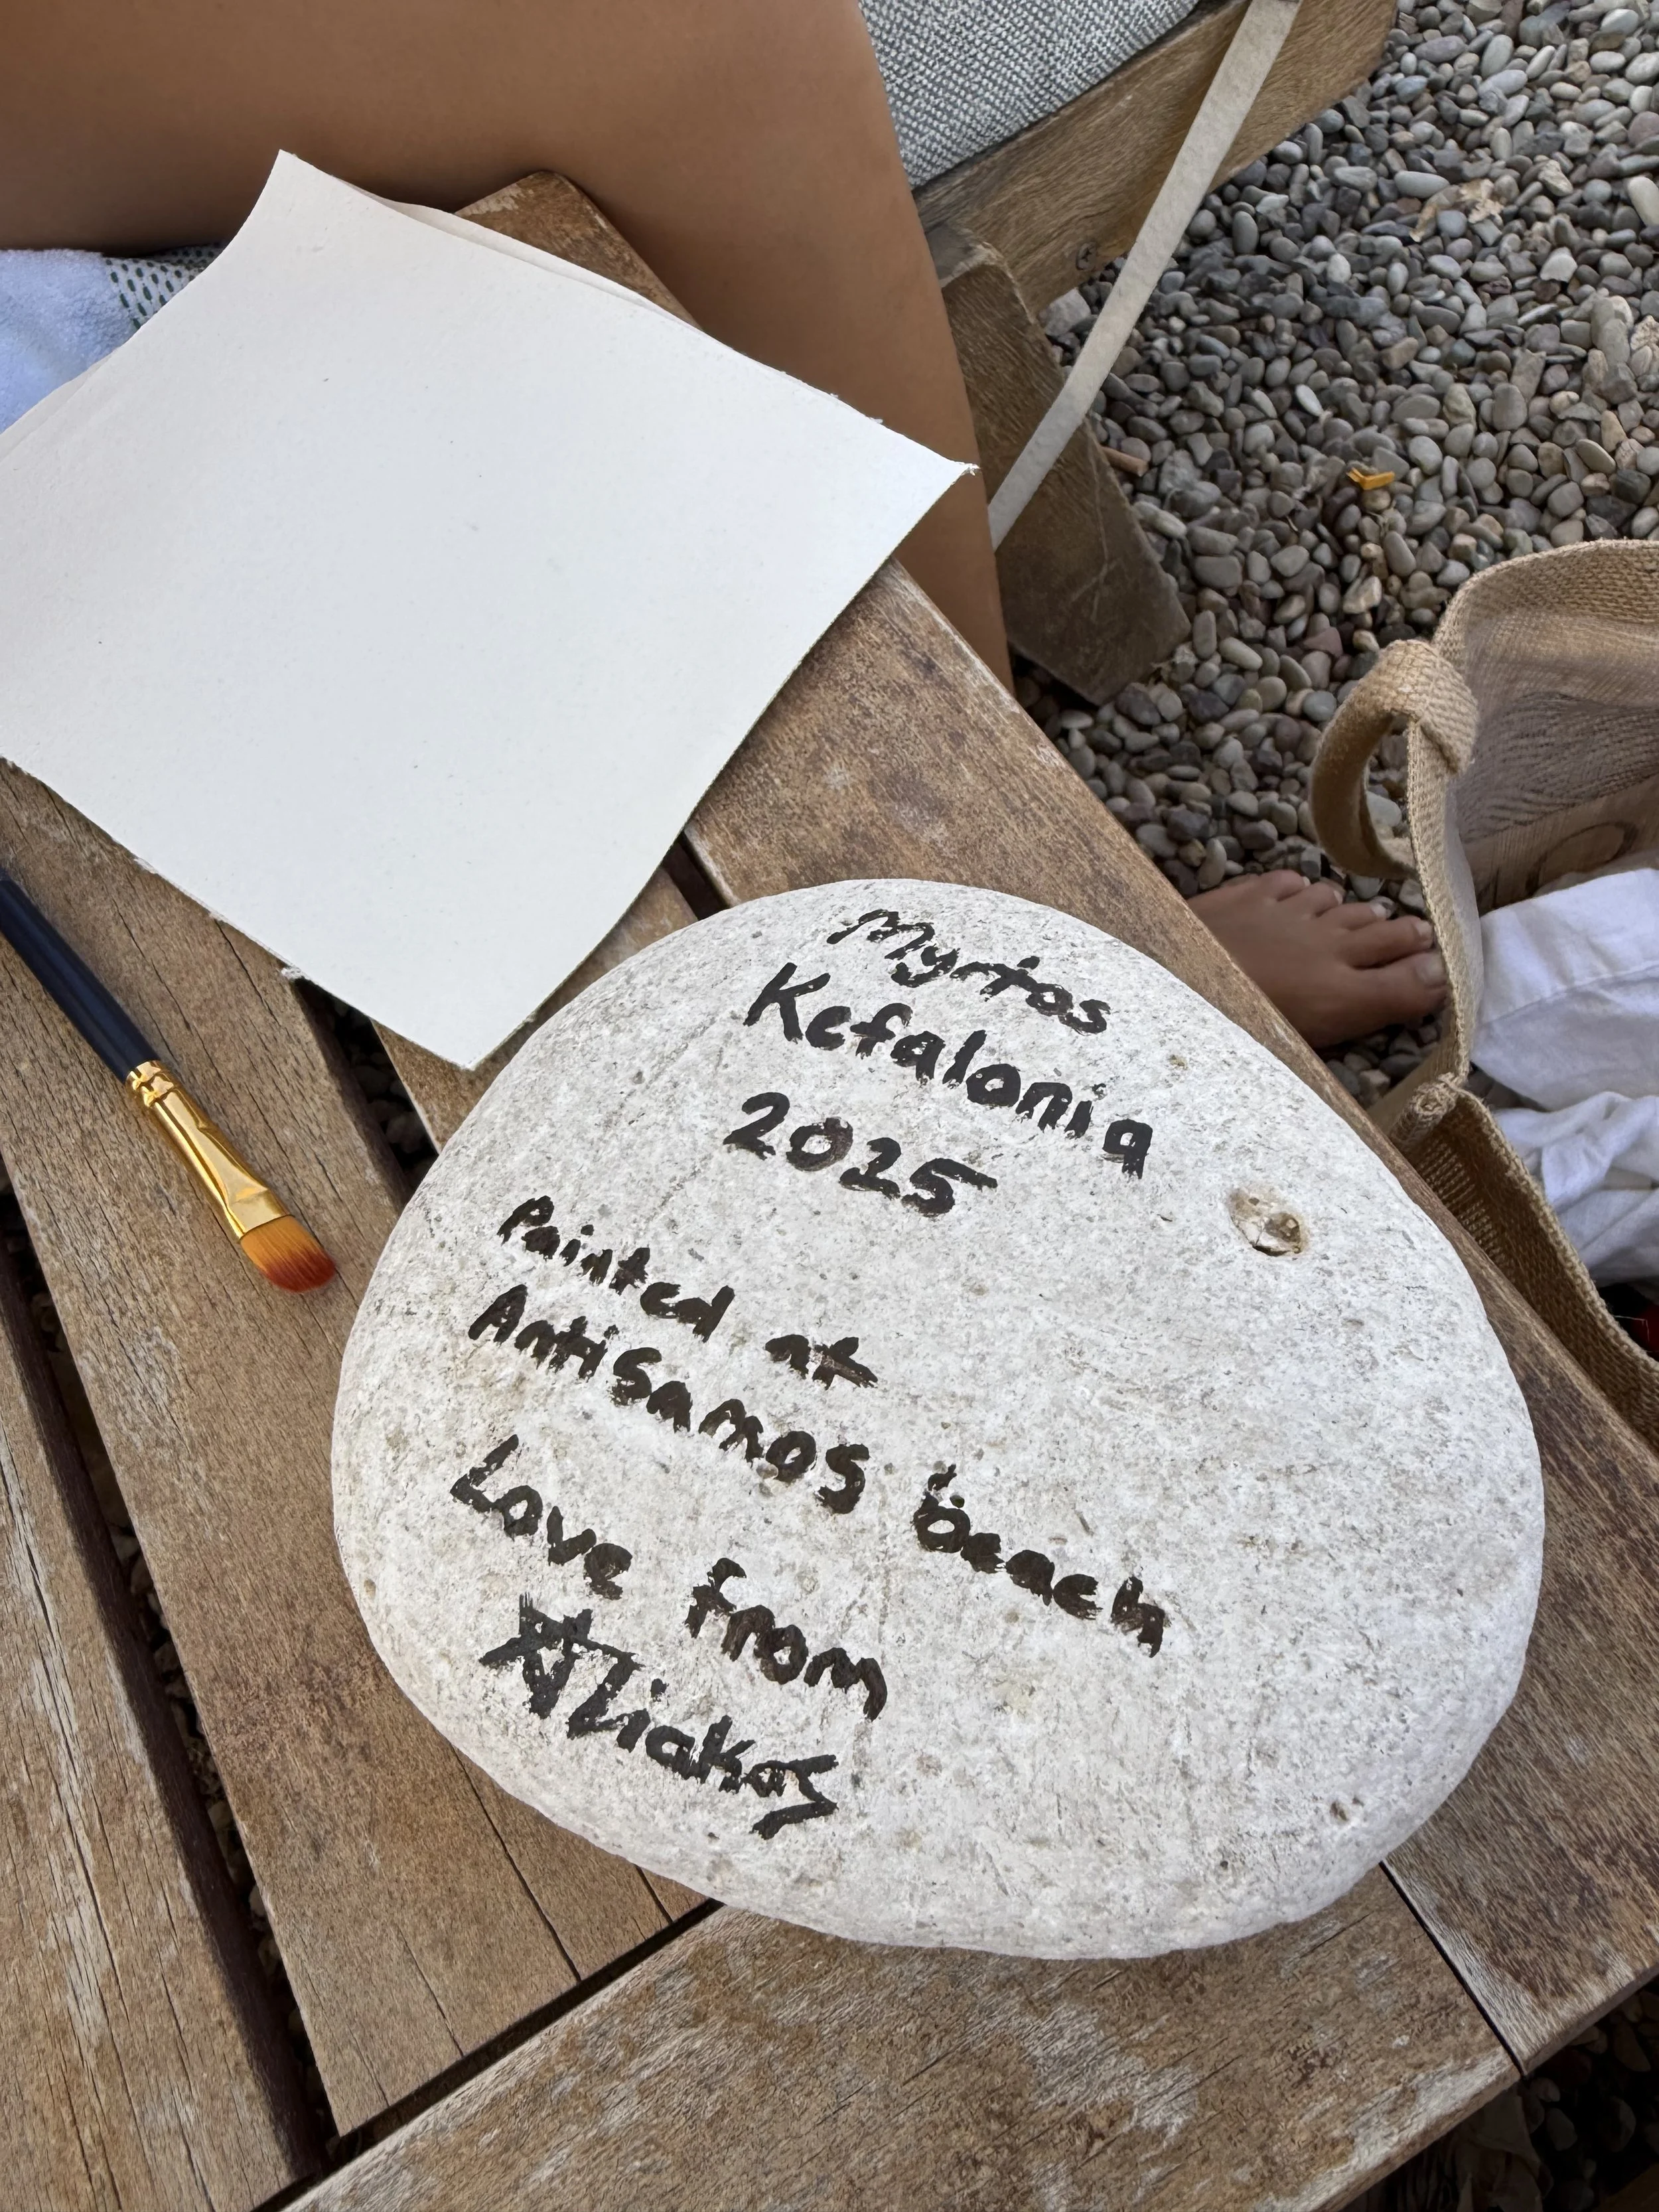 Myrtos
Kefalonia
2025
Painted at
Antisamos beach
Love from